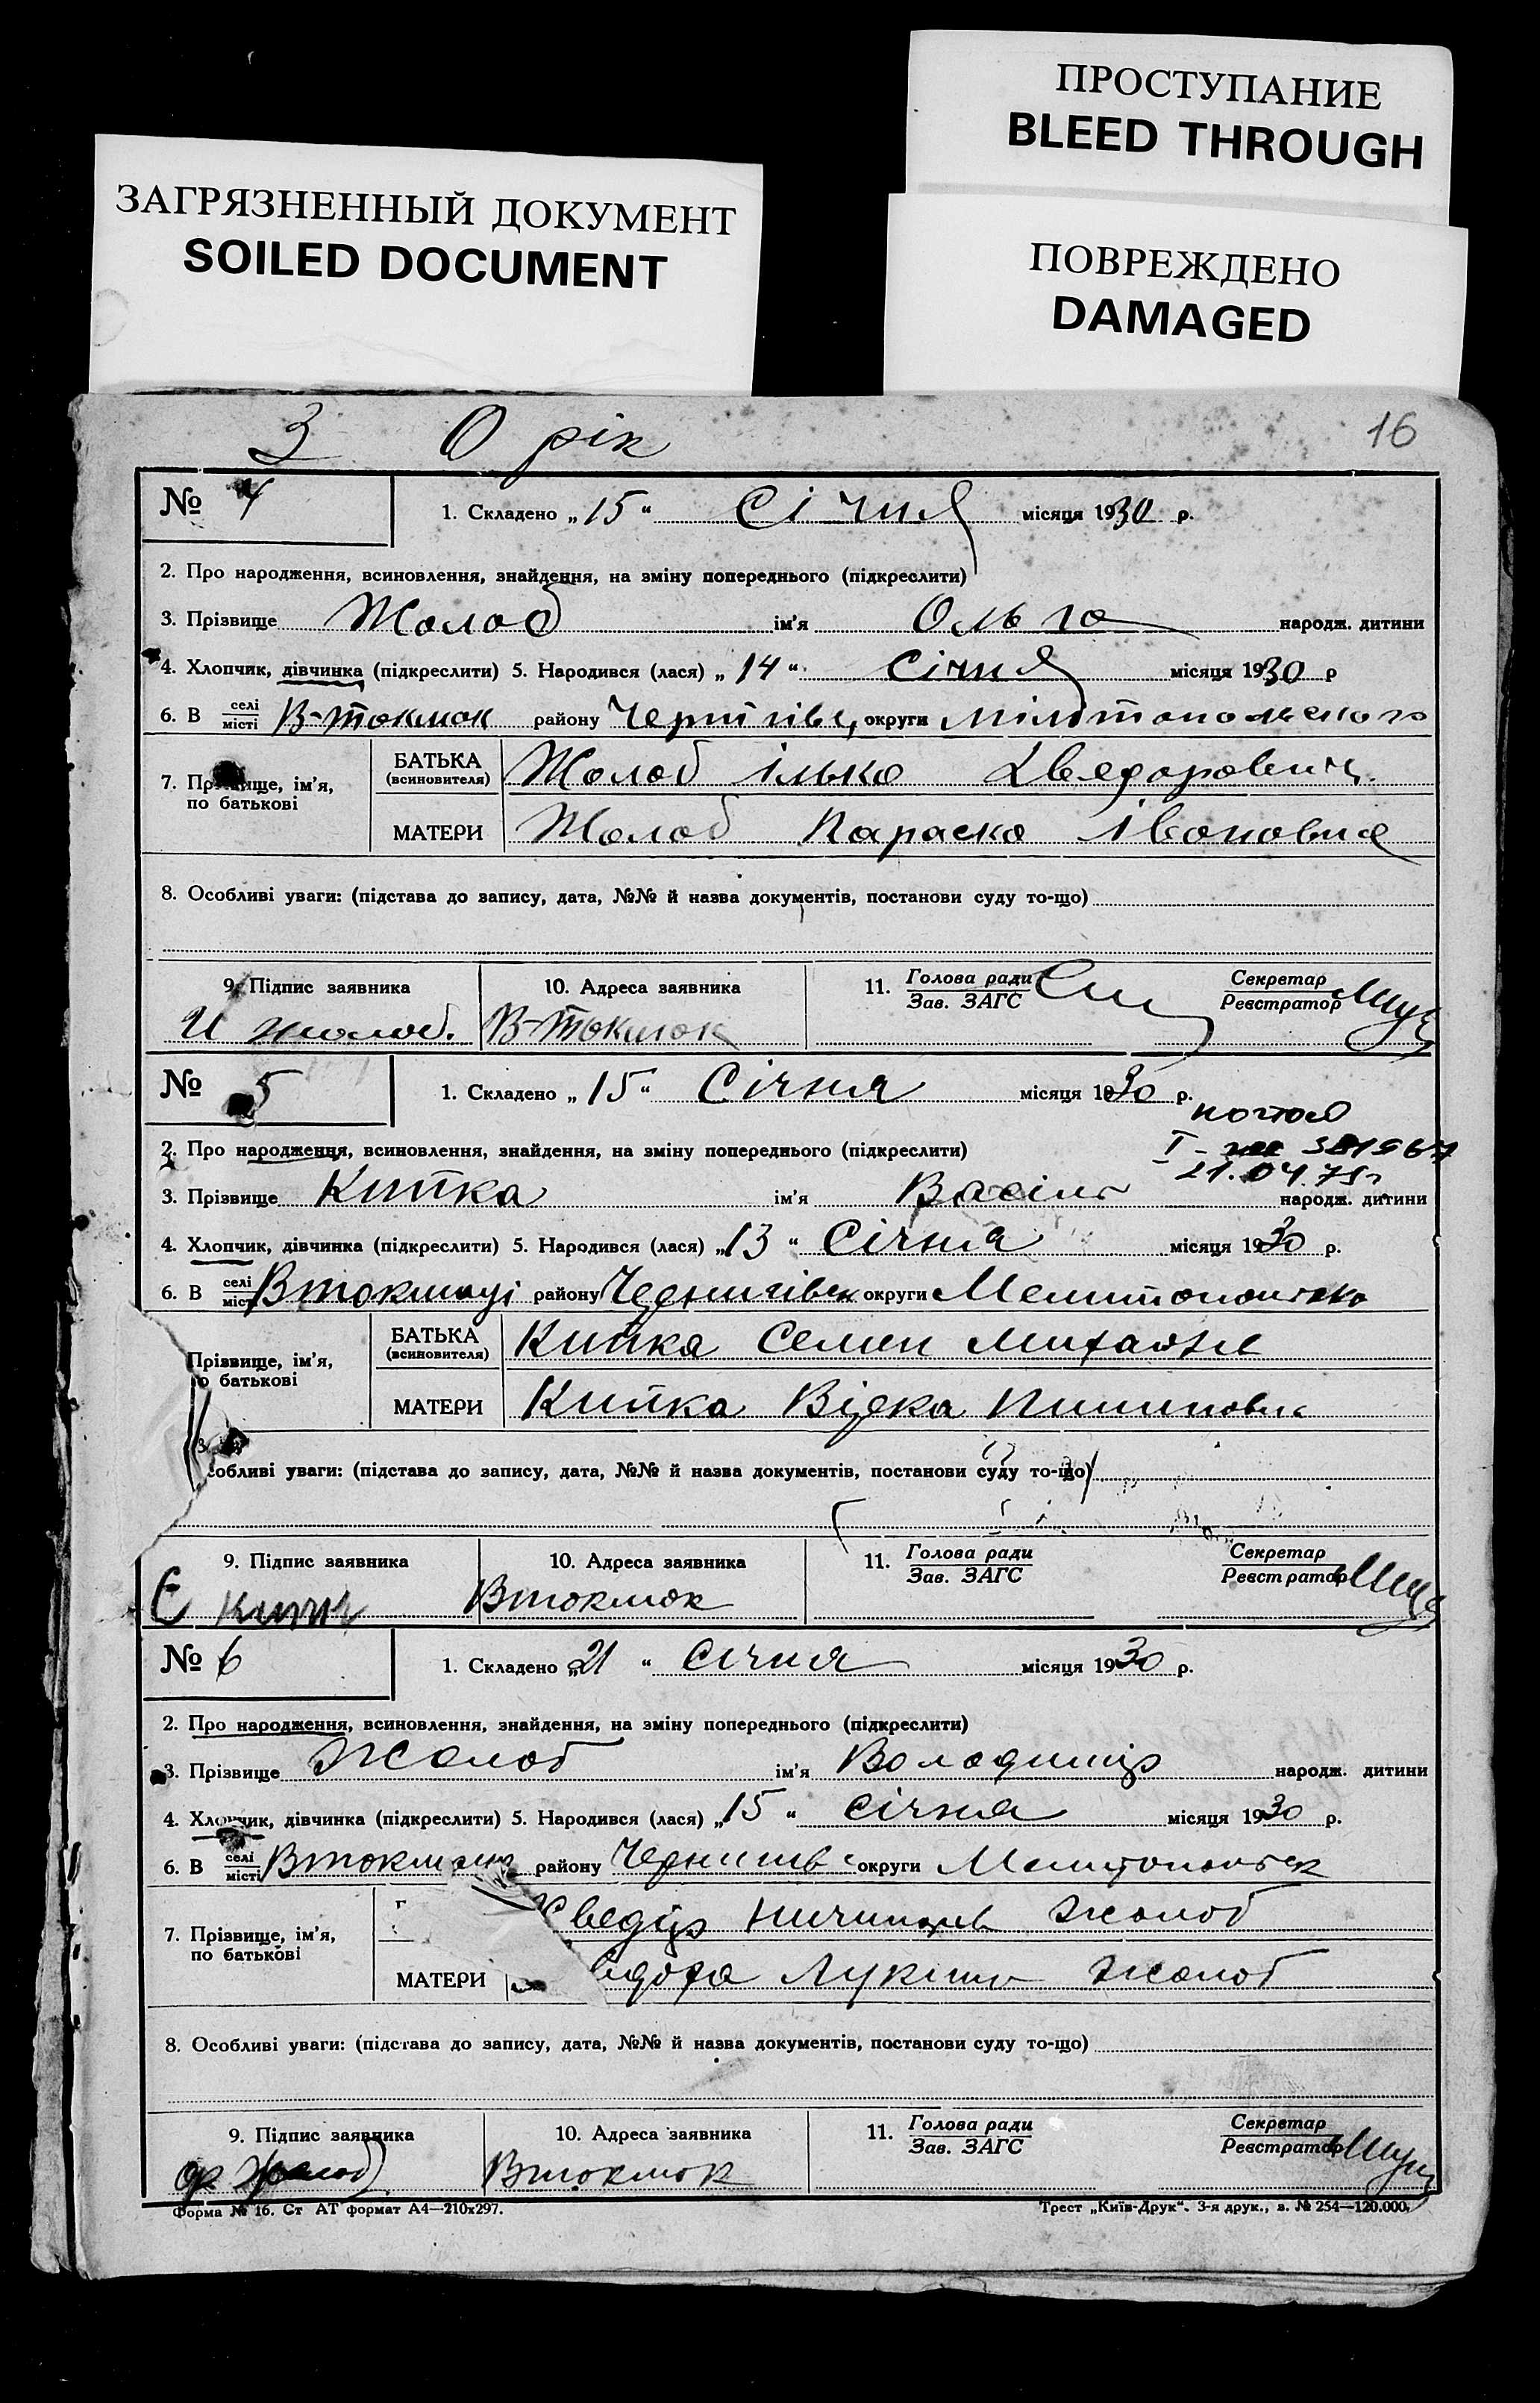 ПРОСТУПАНИЕ
BLEED THROUGH
ЗАГРЯЗНЕННЫЙ ДОКУМЕНТ
SOILED DOCUMENT
ПОВРЕЖДЕНО
DAMAGED
3 0 рік 16
№ 4 1. Складено „15“ Січня місяця 1930 р.
2. Про народження, всиновлення, знайдення, на зміну попереднього (підкреслити)
3. Прізвище Жолоб ім'я Ольга народж. дитини
4. Хлопчик, дівчинка (підкреслити) 5. Народився (лася) „14“ Січня місяця 1930 р
6. В селі/місті В-Токмак району Чернігівс, округи Мілітопольского
7. Прізвище, ім'я, по батькові
БАТЬКА (всиновителя) Жолоб Ілько Хведорович
МАТЕРИ Жолоб Параска Івановна
8. Особливі уваги: (підстава до запису, дата, №№ й назва документів, постанови суду то-що)
9. Підпис заявника 10. Адреса заявника 11. Голова ради/Зав. ЗАГС Секретар/Реєстратор
И жолоб. В-Токмак
№ 5 1. Складено „15“ Січня місяця 1930 р.
2. Про народження, всиновлення, знайдення, на зміну попереднього (підкреслити)
21.04.75г
3. Прізвище ім'я Василь народж. дитини
4. Хлопчик, дівчинка (підкреслити) 5. Народився (лася) „13“ Січня місяця 1930 р.
6. В селі/міст Втокмаці району округи
Прізвище, ім'я, по батькові
БАТЬКА (всиновителя) Семен
МАТЕРИ
собливі уваги: (підстава до запису, дата, №№ й назва документів, постанови суду то-що)
9. Підпис заявника 10. Адреса заявника 11. Голова ради/Зав. ЗАГС Секретар/Реєст ратор
Втокмак
№ 6 1. Складено „21“ Січня місяця 1930 р.
2. Про народження, всиновлення, знайдення, на зміну попереднього (підкреслити)
3. Прізвище Жолоб ім'я Володимір народж. дитини
4. Хлопчик, дівчинка (підкреслити) 5. Народився (лася) „15“ Січня місяця 1930 р.
6. В селі/місті району округи
7. Прізвище, ім'я, по батькові
Хведір Жолоб
МАТЕРИ Жолоб
8. Особливі уваги: (підстава до запису, дата, №№ й назва документів, постанови суду то-що)
9. Підпис заявника 10. Адреса заявника 11. Голова ради/Зав. ЗАГС Секретар/Реєстратор
Втокмак
Форма № 16. Ст АТ формат А4—210х297. Трест „Київ-Друк“. 3-я друк., з. № 254—120.000.